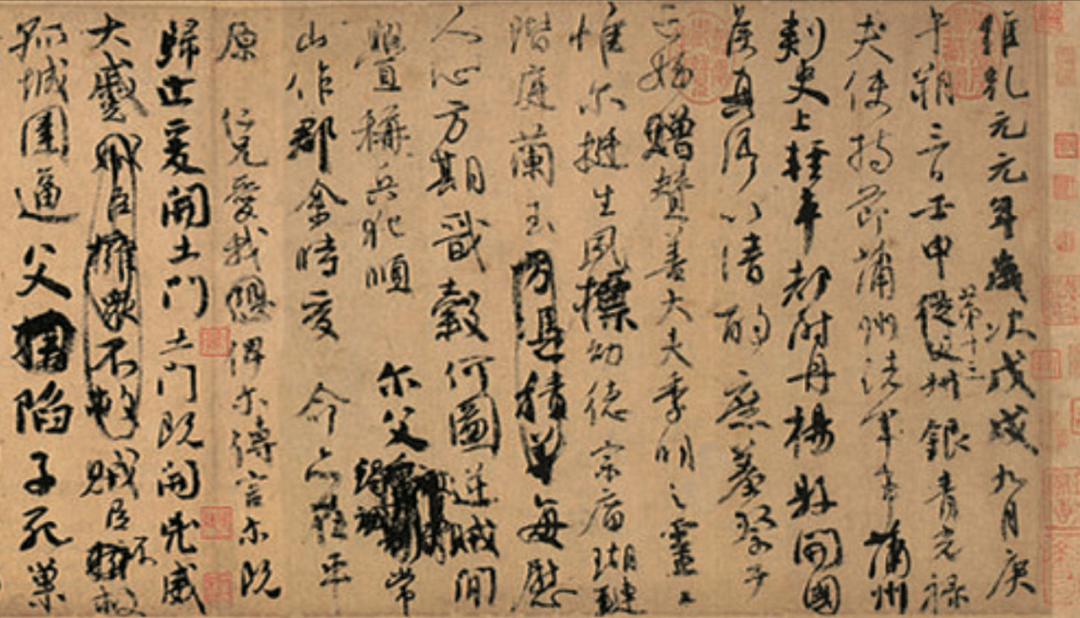 維乾元元年歲次戊戌九月庚
午朔三日壬申第十三從父叔銀青光祿
夫使持節蒲州諸軍事蒲州
刺史上輕車都尉丹楊縣開國
侯真卿以清酌庶羞祭于
亡姪贈贊善大夫季明之靈曰
惟爾挺生夙標幼德宗廟瑚璉
階庭蘭玉方憑積善每慰
人心方期戩穀何圖逆賊間
釁稱兵犯順 爾父竭誠常
山作郡余時受 命亦在平
原 仁兄愛我恐俾爾傳言爾既
歸止爰開土門土門既開兇威
大蹙賊臣擁眾不救賊臣不救
孤城圍逼父陷子死巢